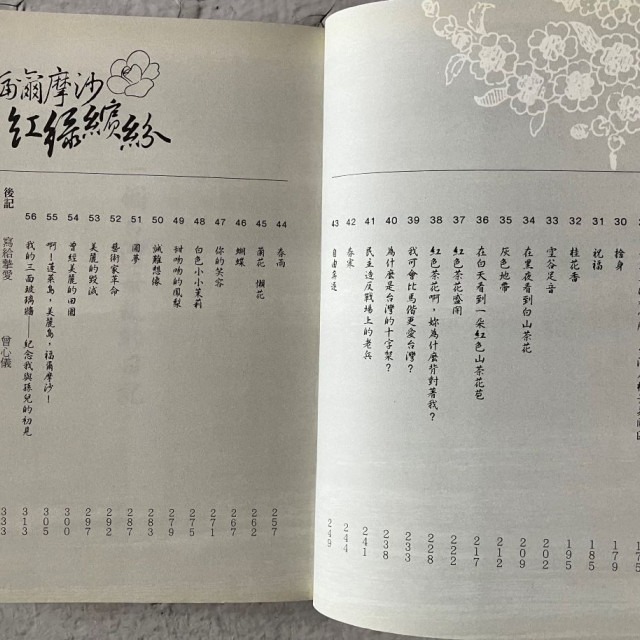 175
30 捨身 179
31 祝福 185
32 桂花香 195
33 空谷足音 202
34 在黑夜看到白山茶花 209
35 灰色地帶 212
36 在白天看到一朵紅色山茶花苞 217
37 紅色茶花盛開 222
38 紅色茶花啊，妳為什麼背對著我？ 228
39 我可會比馬偕更愛台灣？ 233
40 為什麼是台灣的十字架？ 238
41 民主違反戰場上的老兵 241
42 春寒 244
43 自由 249
福爾摩沙
紅綠繽紛
44 春雨 257
45 蘭花 懶花 262
46 蝴蝶 267
47 你的笑容 271
48 白色小小茉莉 275
49 甜吻吻的鳳梨 279
50 誠難想像 283
51 圓夢 287
52 藝術家革命 292
53 美麗的毀滅 297
54 曾經美麗的田園 300
55 啊！蓬萊島，美麗島，福爾摩沙！ 305
56 我的三面玻璃牆——紀念我與孫兒的初見 313
後記 寫給摯愛 曾心儀 333